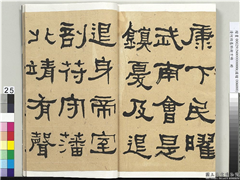 康下民曜
武南會是
鎮憂及追
追身帝室
剖符守藩
北靖有聲
25